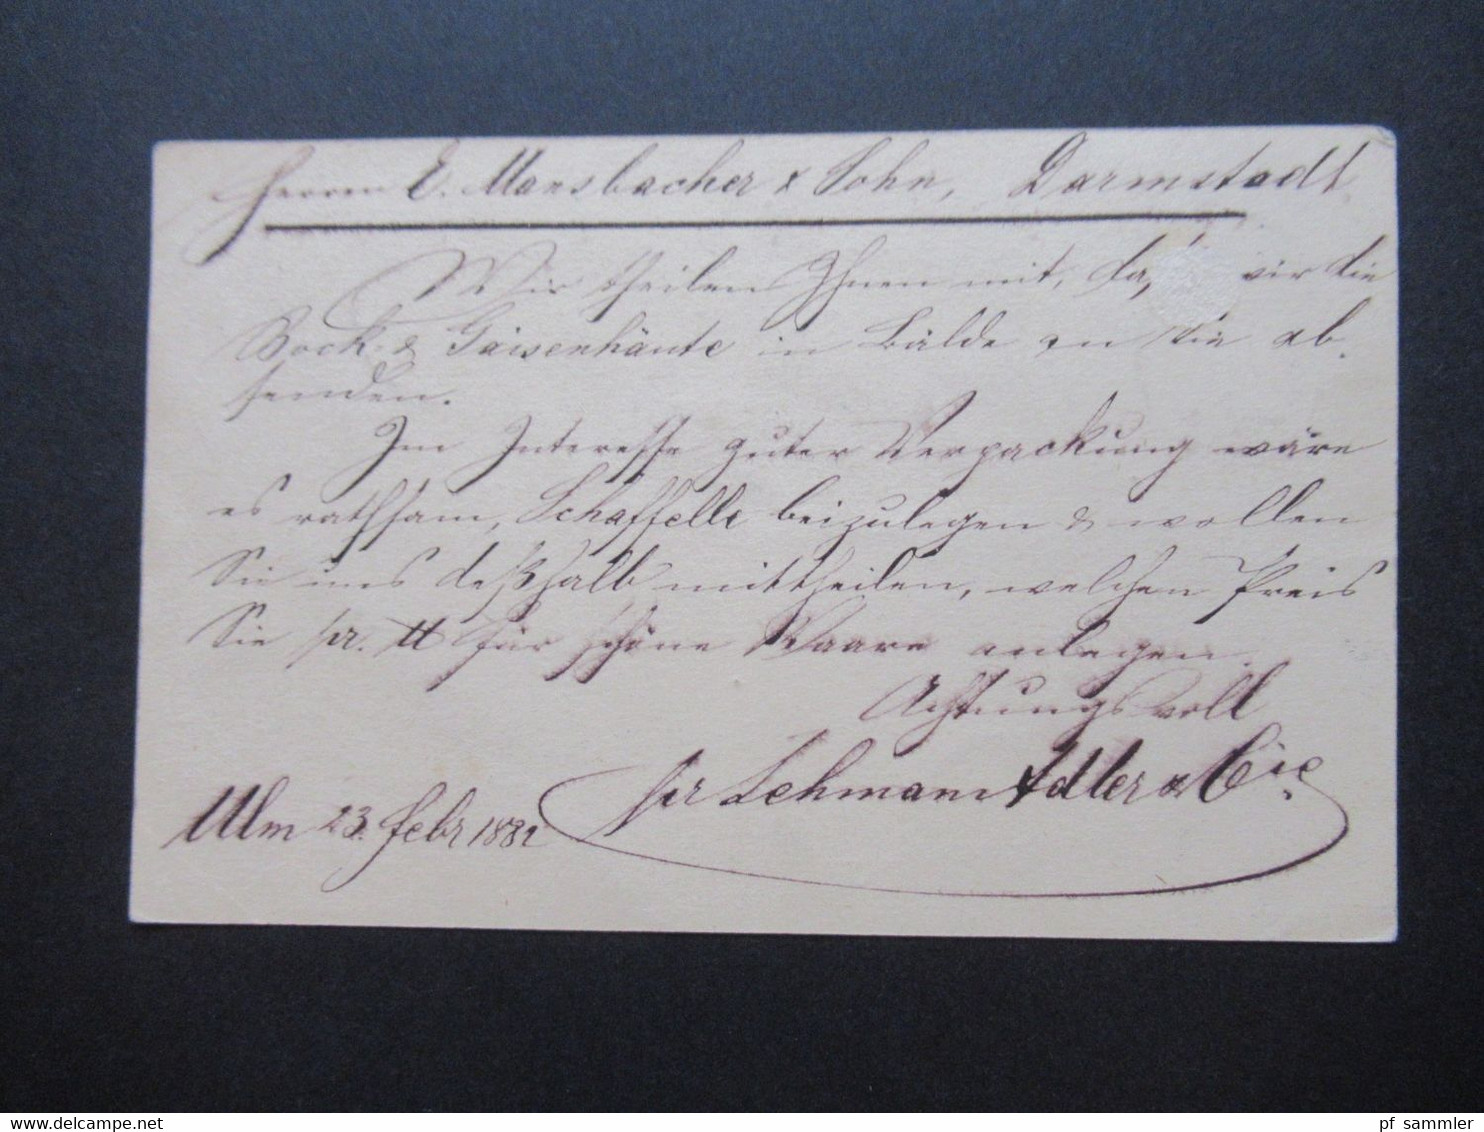 Herren E. Mansbacher & Sohn, Darmstadt
Wir theilen Ihnen mit, da, wir die
Bock- & Gaisenhäute in Bälde an Sie ab-
senden.
Im Interesse guter Verpackung wäre
es rathsam, Schaffelle beizulegen & wollen
Sie uns deßhalb mittheilen, welchen Preis
Sie pr. ℔ für schöne Waare anlegen.
Achtungsvoll
ppr Lehmann Adler & Cie
Ulm 23. Febr 1882
www.delcampe.net
pf_sammler